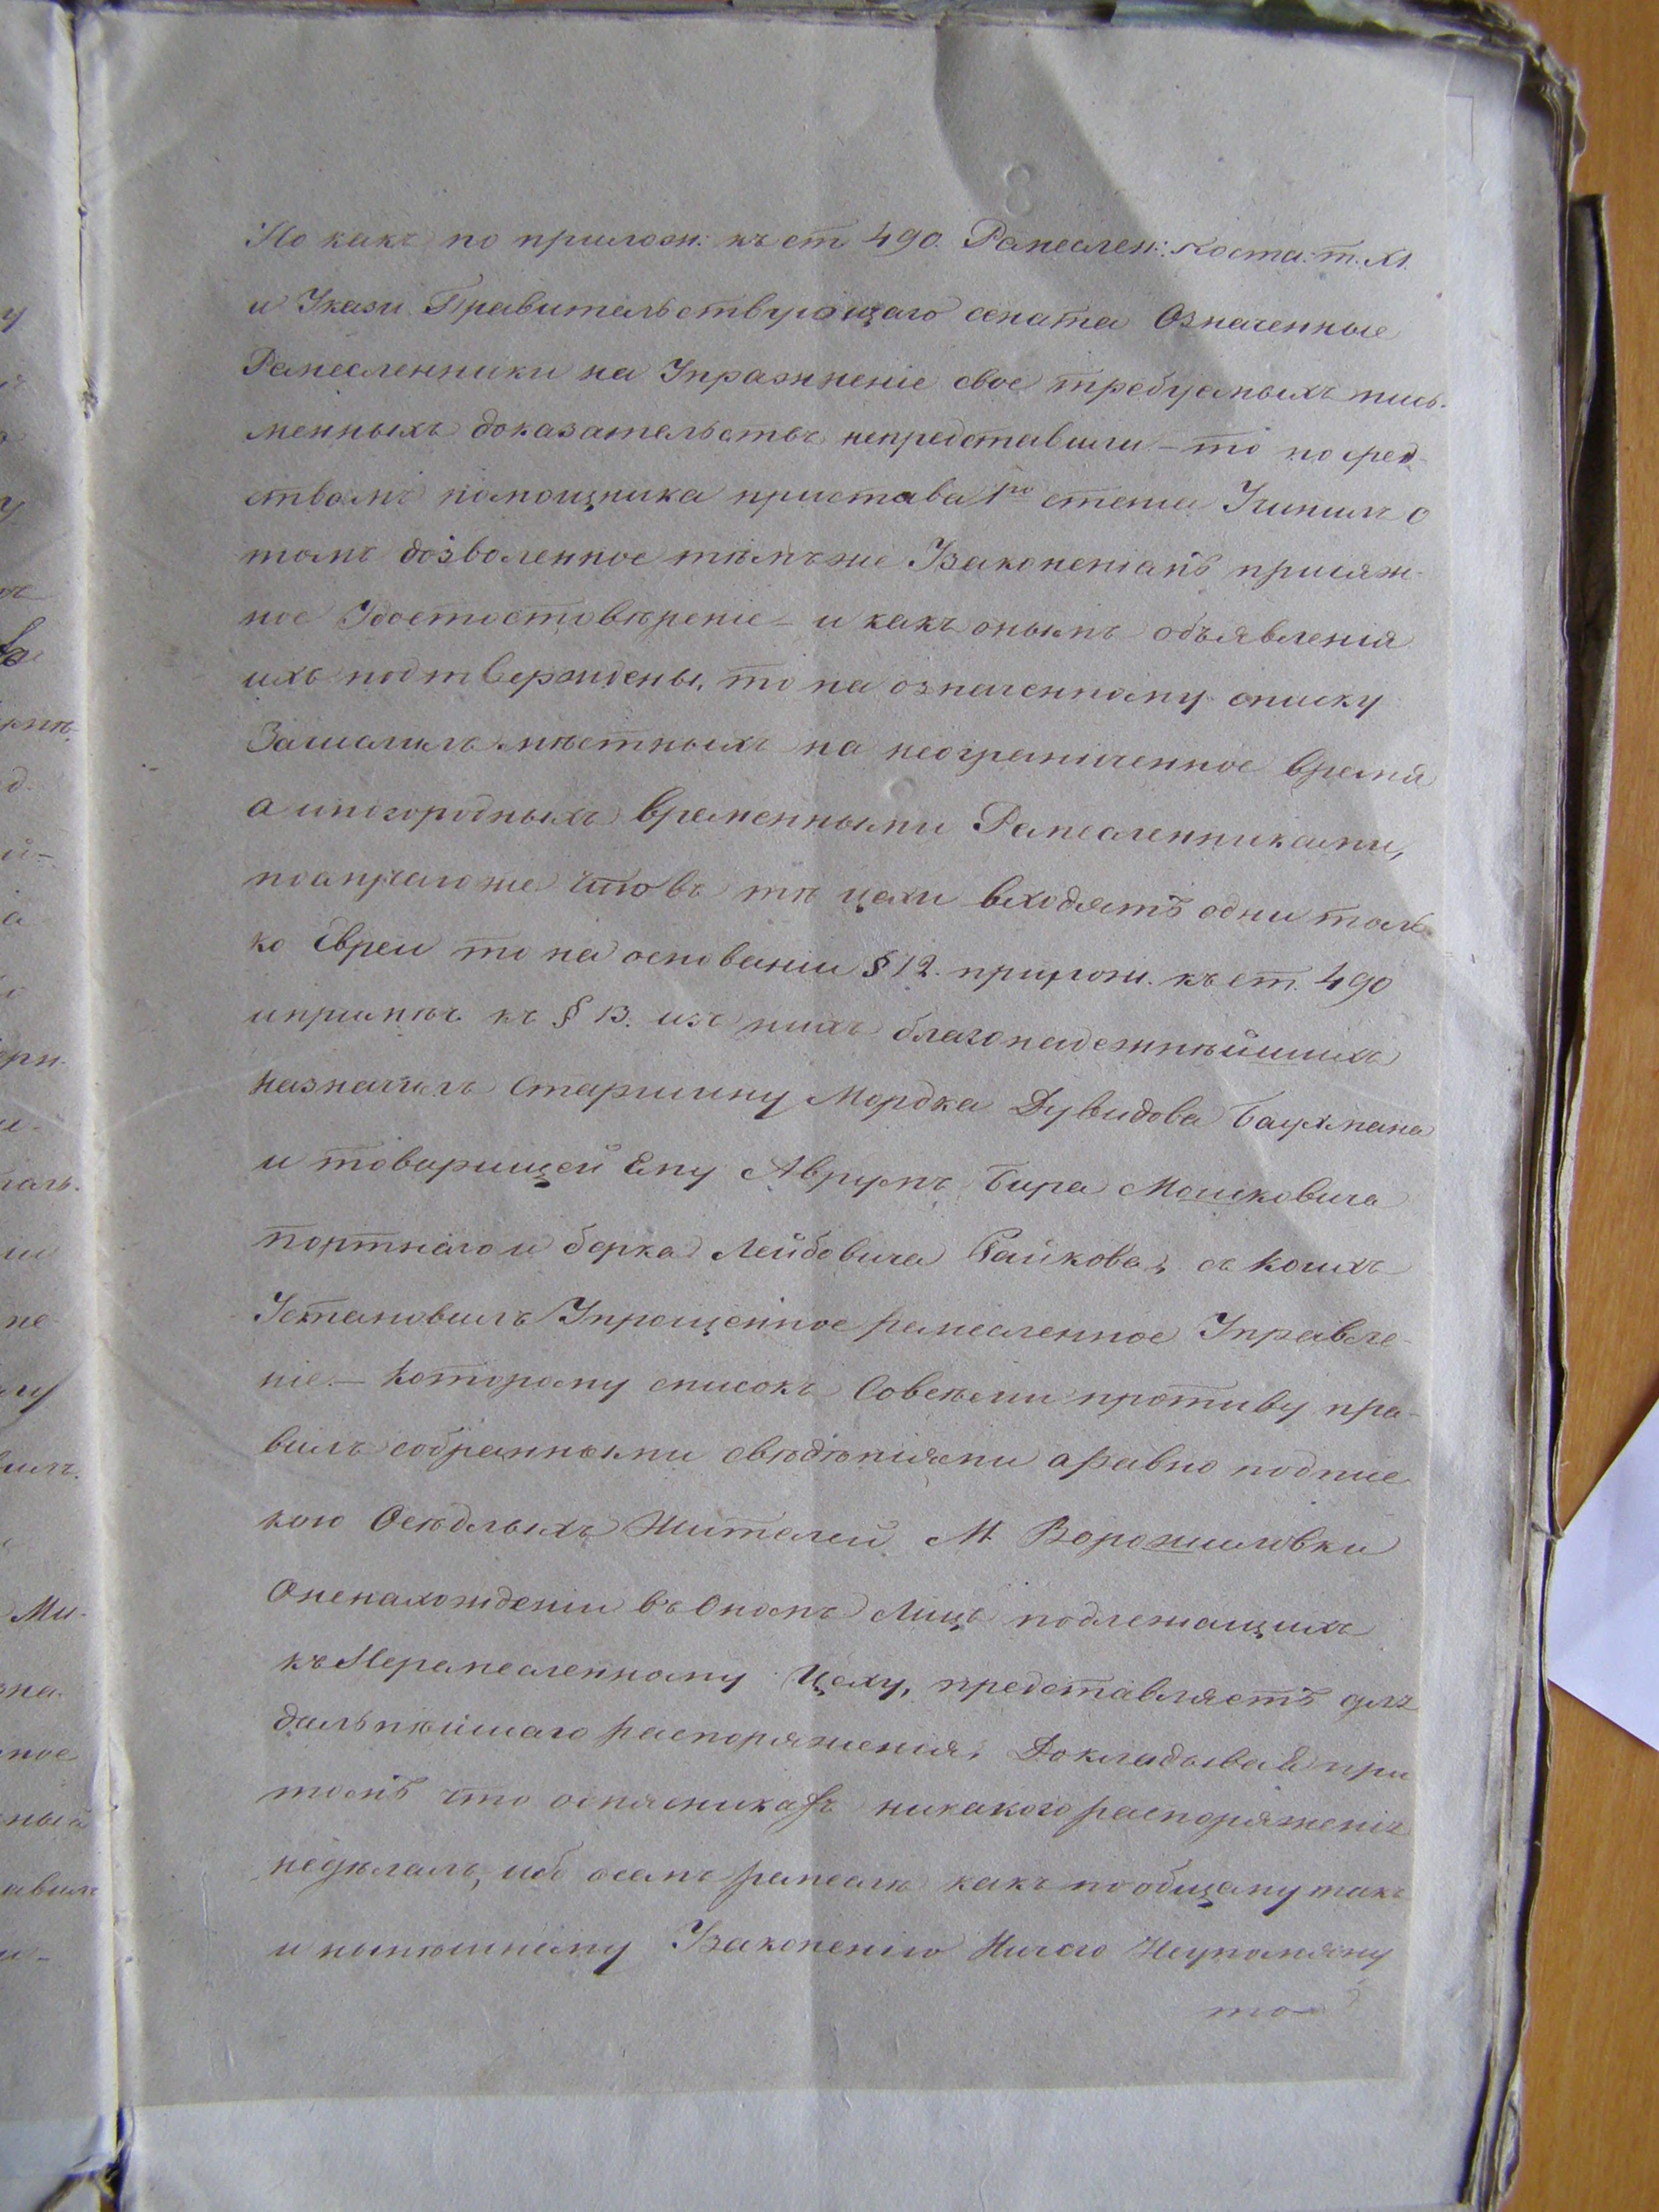 Но какъ по прилож: къ ст 490. Ремеслен: поста: т. XI.
и Указу Правительствующаго сената Означенные
Ремесленники на Упражненіе свое требуемыхъ пись-
менныхъ доказательствъ непредставили – то посред-
ствомъ помощника пристава 1го стана Учинилъ о
томъ дозволенное тѣмъже Узаконеніемъ присяж-
ное Удостостовѣреніе – и какъ онымъ объявленія
ихъ подтверждены, то па означенному списку
Зачислилъ мѣстныхъ на неограниченное время
а иногородныхъ временными Ремесленниками,
поаплуче что въ тѣ цехи входятъ одни толь
ко Евреи то на основаніи § 12. прилож. къ ст. 490
ипримѣч къ § 13. изъ нихъ благонадежнѣйшихъ
назначилъ Старшину Мордка Дувидова Баухмана
и товарищей Ему Аврумъ Бира Мошковича
портнаго и берка Лейбовича Райкова, съ коихъ
Установилъ Упрощенное ремесленное Управле-
ніе – которому списокъ Совсѣми противу пра-
вилъ собранными свѣдѣніями аравно подпис
кою Осѣдлыхъ Жителей М Ворошиловки
Оненахожденіи въ Ономъ Лицъ подлежащихъ
къ Неремесленному Цеху, представляетъ для
дальнѣйшаго распоряженія, Докладывая при
томъ что оспасникахъ никакого распоряженія
недѣлалъ, ибо осемъ ремеслѣ какъ пообщему такъ
и нынѣшнему Узаконенію Ничего Неупомяну
то